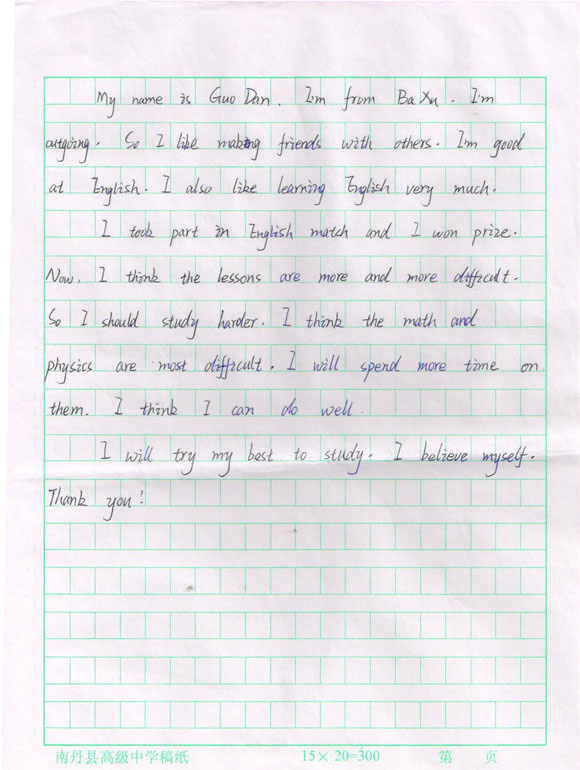 My name is Guo Dan. I'm from Ba Xu. I'm
outgoing. So I like making friends with others. I'm good
at English. I also like learning English very much.
I took part in English match and I won prize.
Now. I think the lessons are more and more difficult.
So I should study harder. I think the math and
physics are most difficult. I will spend more time on
them. I think I can do well.
I will try my best to study. I believe myself.
Thank you!
南丹县高级中学稿纸 15×20=300 第 页